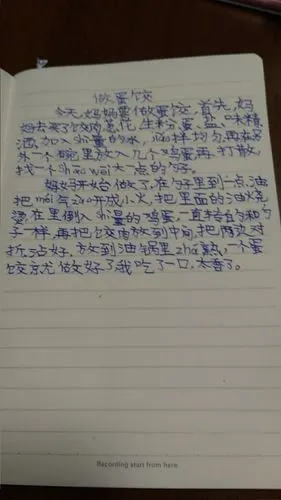 做蛋饺
今天,妈妈要做蛋饺,首先,妈
妈去买了饺肉葱花,生粉,蛋,盐,味精
酒,加入shi量的水,搅拌均匀,再在另
外一个碗里放入几个鸡蛋,再打散,
找一个shao wei大一点的勺子。
妈妈开始做了,在勺子里到一点油
把mei气zao开成小火,把里面的油火烧
烫,在里倒入shi量的鸡蛋,一直拾
子一样,再把饺肉放到中间,把两边对
折,沾好,放到油锅里zhá熟,一个蛋
饺就做好了,我吃了一口,太香了。
Recording start from here